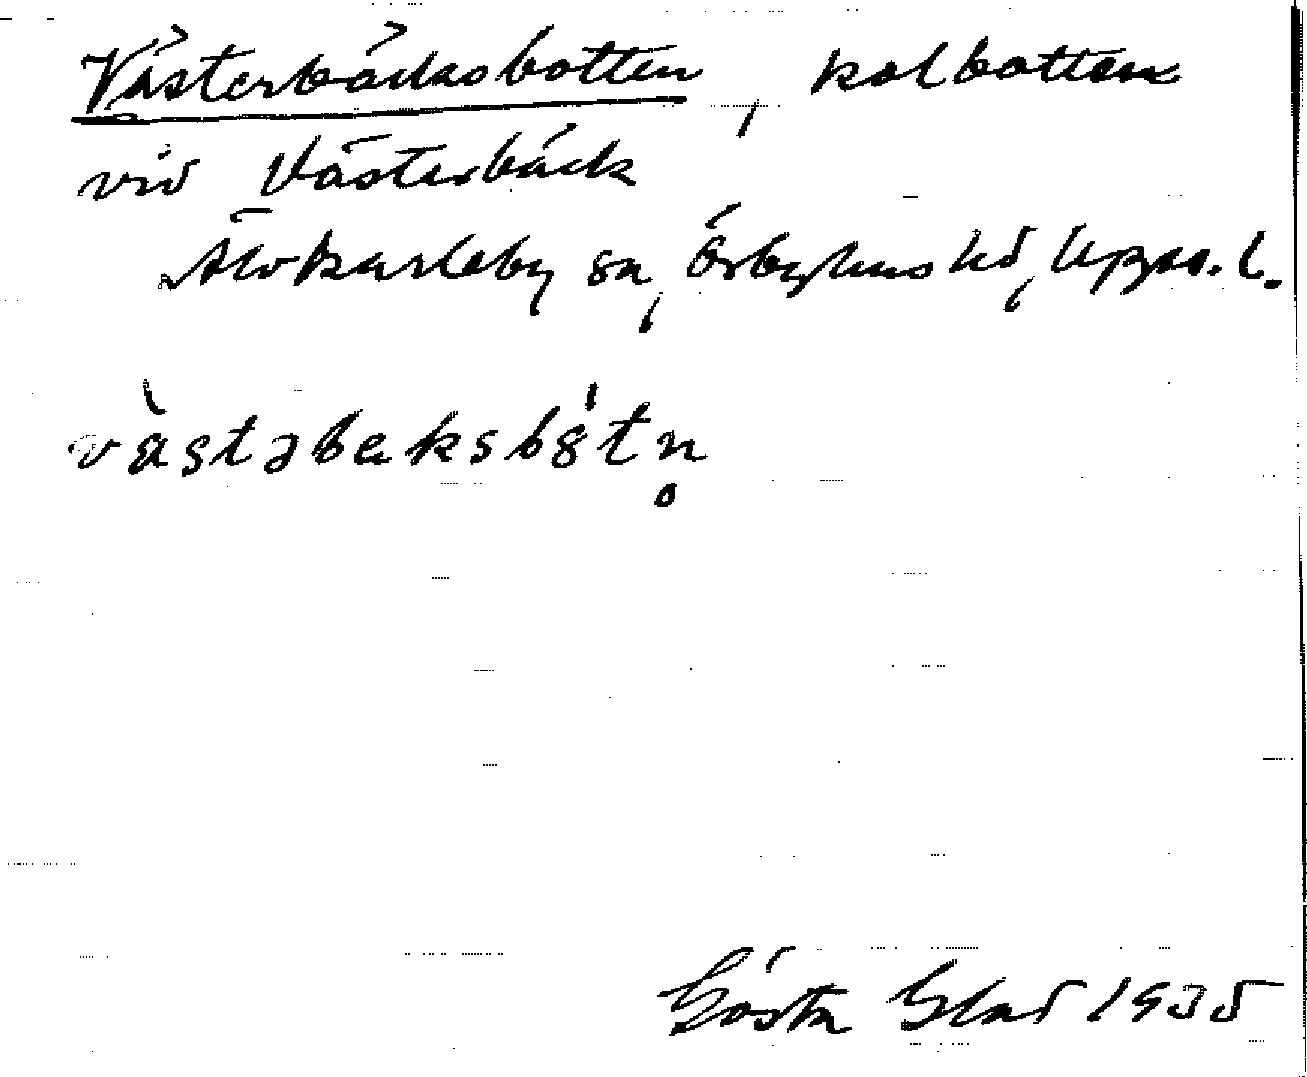 Västerbäcksbotten, kolbotten
vid Västerbäck
Älvkarleby sn, Örbyhus hd, Upps. l.
vàstəbaksbȣ́tn̥
Gösta Blad 1935